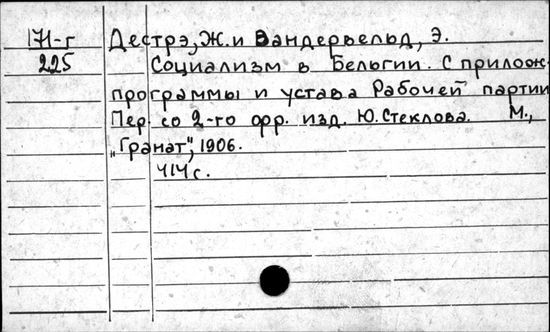 171-г Дестрэ, Ж. и Вандервельд, Э.
225 Социализм в Бельгии. С прилож.
программы и устава Рабочей партии
Пер. со 2-го фр. изд. Ю. Стеклова. М.,
„Гранат", 1906.
414 с.